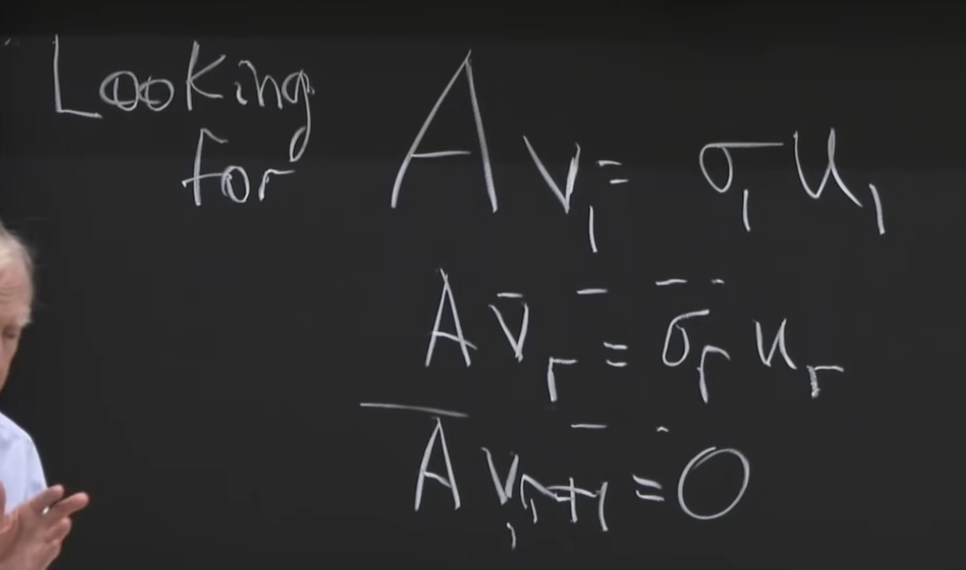 Looking
for
A v₁ = σ₁ u₁
A vᵣ = σᵣ uᵣ
A vᵣ₊₁ = 0